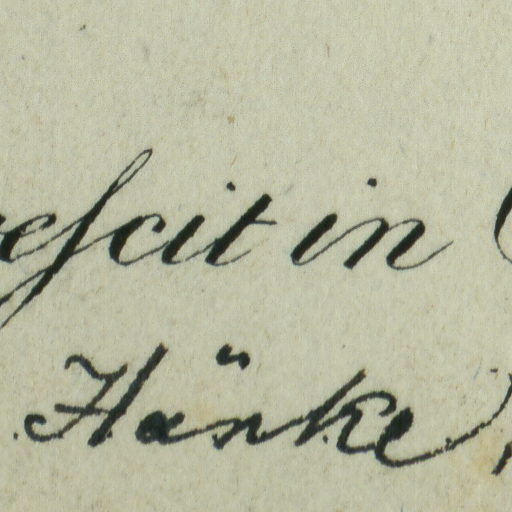 rescit in
Hänke